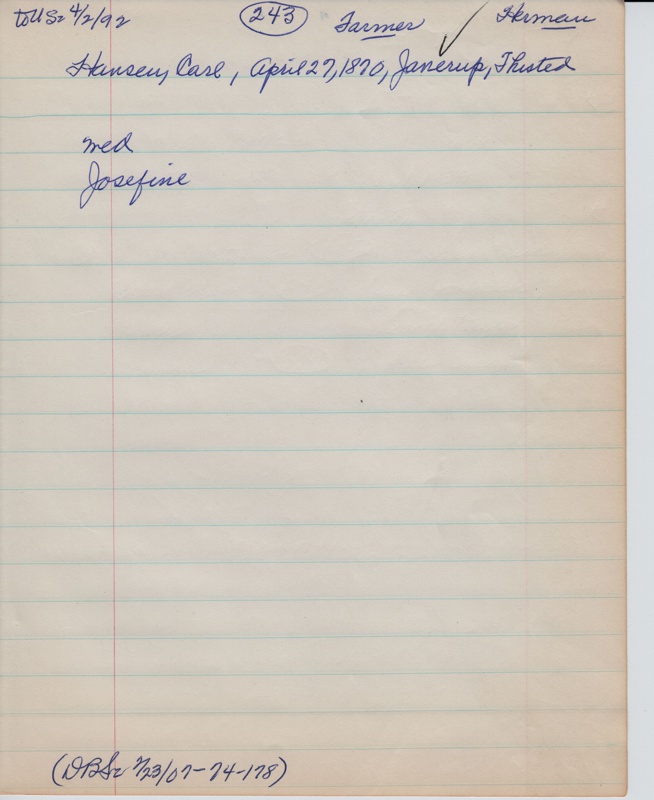 to US 4/2/92 (243) Farmer Herman
Hansen, Carl, April 27, 1870, Janerup, Thisted
med
Josefine
(DBS 7/23/07-74-178)